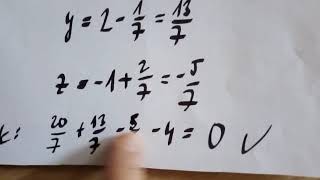 y = 2 - 1/7 = 13/7
z = -1 + 2/7 = -5/7
: 20/7 + 13/7 - 5/7 - 4 = 0 ✓